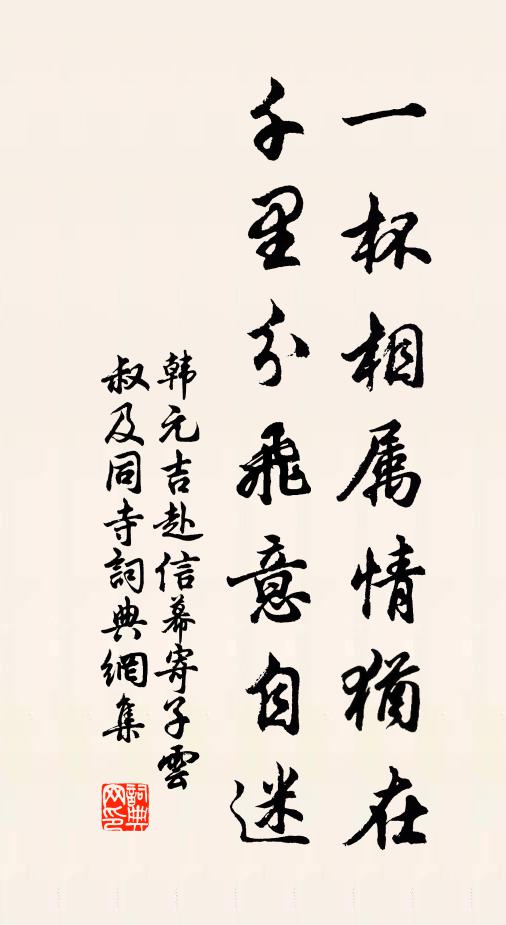 一杯相属情猶在
千里分飛意自迷
韩元吉赴信幕寄子雲
叔及同寺詞典網集
詞典网印